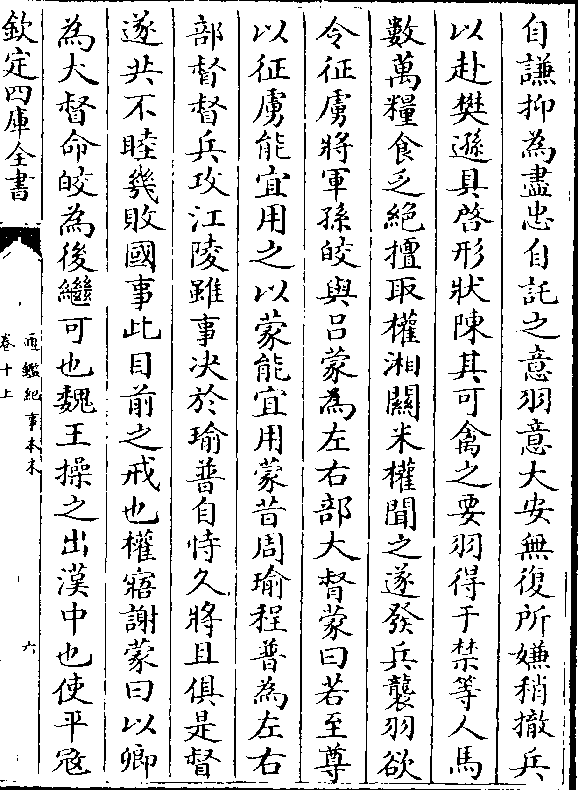 自謙抑為盡忠自託之意羽意大安無復所嫌稍撤兵
以赴樊遜具啓形狀陳其可禽之要羽得于禁等人馬
數萬糧食乏絶擅取權湘闗米權聞之遂發兵襲羽欲
令征虜將軍孫皎與吕蒙為左右部大督蒙曰若至尊
以征虜能宜用之以蒙能宜用蒙昔周瑜程普為左右
部督督兵攻江陵雖事决於瑜普自恃久將且俱是督
遂共不睦幾敗國事此目前之戒也權寤謝蒙曰以卿
為大督命皎為後繼可也魏王操之出漢中也使平寇
欽定四庫全書
通鑑紀事本末
卷十上
六